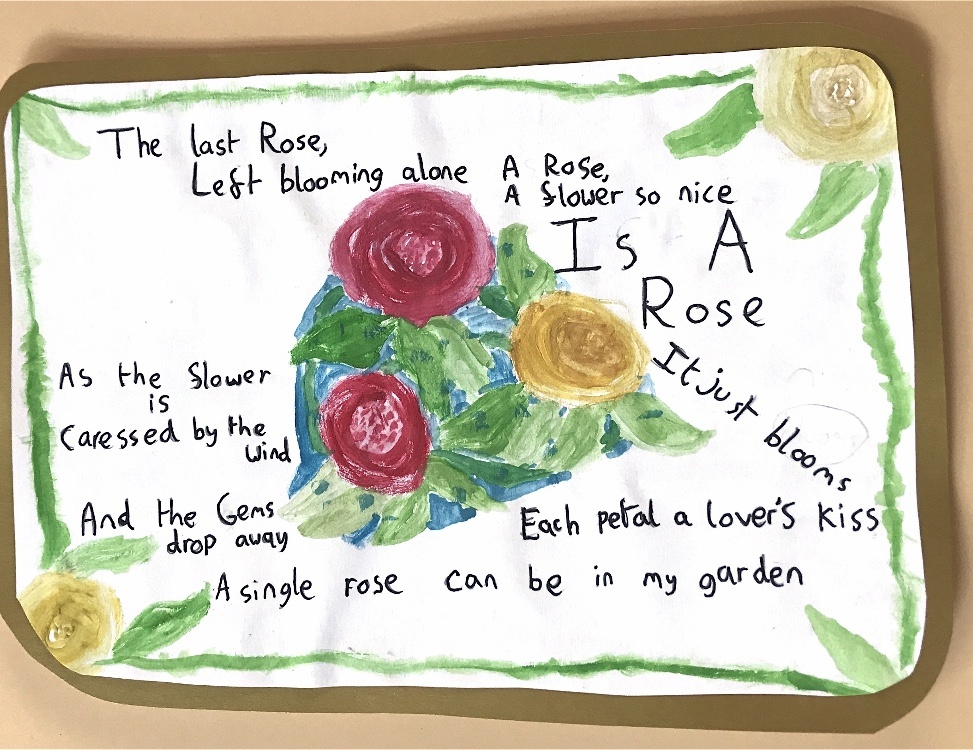 The last Rose,
Left blooming alone
A Rose,
A flower so nice
Is A
Rose
It just blooms
As the flower
is
Caressed by the
Wind
And the Gems
drop away
Each petal a lover's kiss
A single rose can be in my garden